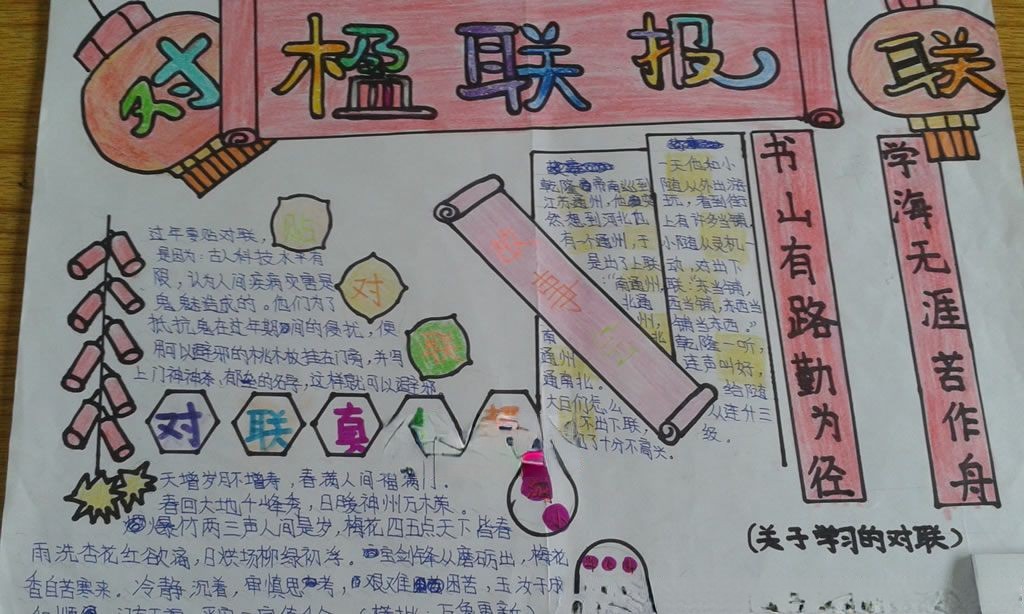 对
楹联报
联
书山有路勤为径
学海无涯苦作舟
(关于学习的对联)
贴
对
联
过年要贴对联,
是因为:古人科技水平有
限,认为人间疾病灾害是
鬼魅造成的。他们为了
抵抗鬼在过年期间的侵扰,便
用可以辟邪的桃木板挂在门旁,并写
上门神神荼、郁垒的名字,这样就可以避邪
对联真
天增岁月人增寿,春满人间福满门.
春回大地千峰秀,日暖神州万木荣。
爆竹两三声人间是岁,梅花四五点天下皆春
雨洗杏花红欲滴,日烘杨柳绿初浮。宝剑锋从磨砺出,梅花
香自苦寒来。冷静沉着,审慎思考,艰难困苦,玉汝于成
乾隆帝南巡到
江苏通州,他突
然想到河北也
有一个通州,于
是出了上联
"南通州,
北通
州,
南北
通州
通南北。
大臣们怎么
不出下联,
十分不高兴。
一天他和小
随从外出游
玩,看到街
上有许多当铺,
小随从灵机一
动,对出下
联:"东当铺,
西当铺,东西当
铺当东西。"
乾隆一听,
连声叫好,
给随
从连升三
级。